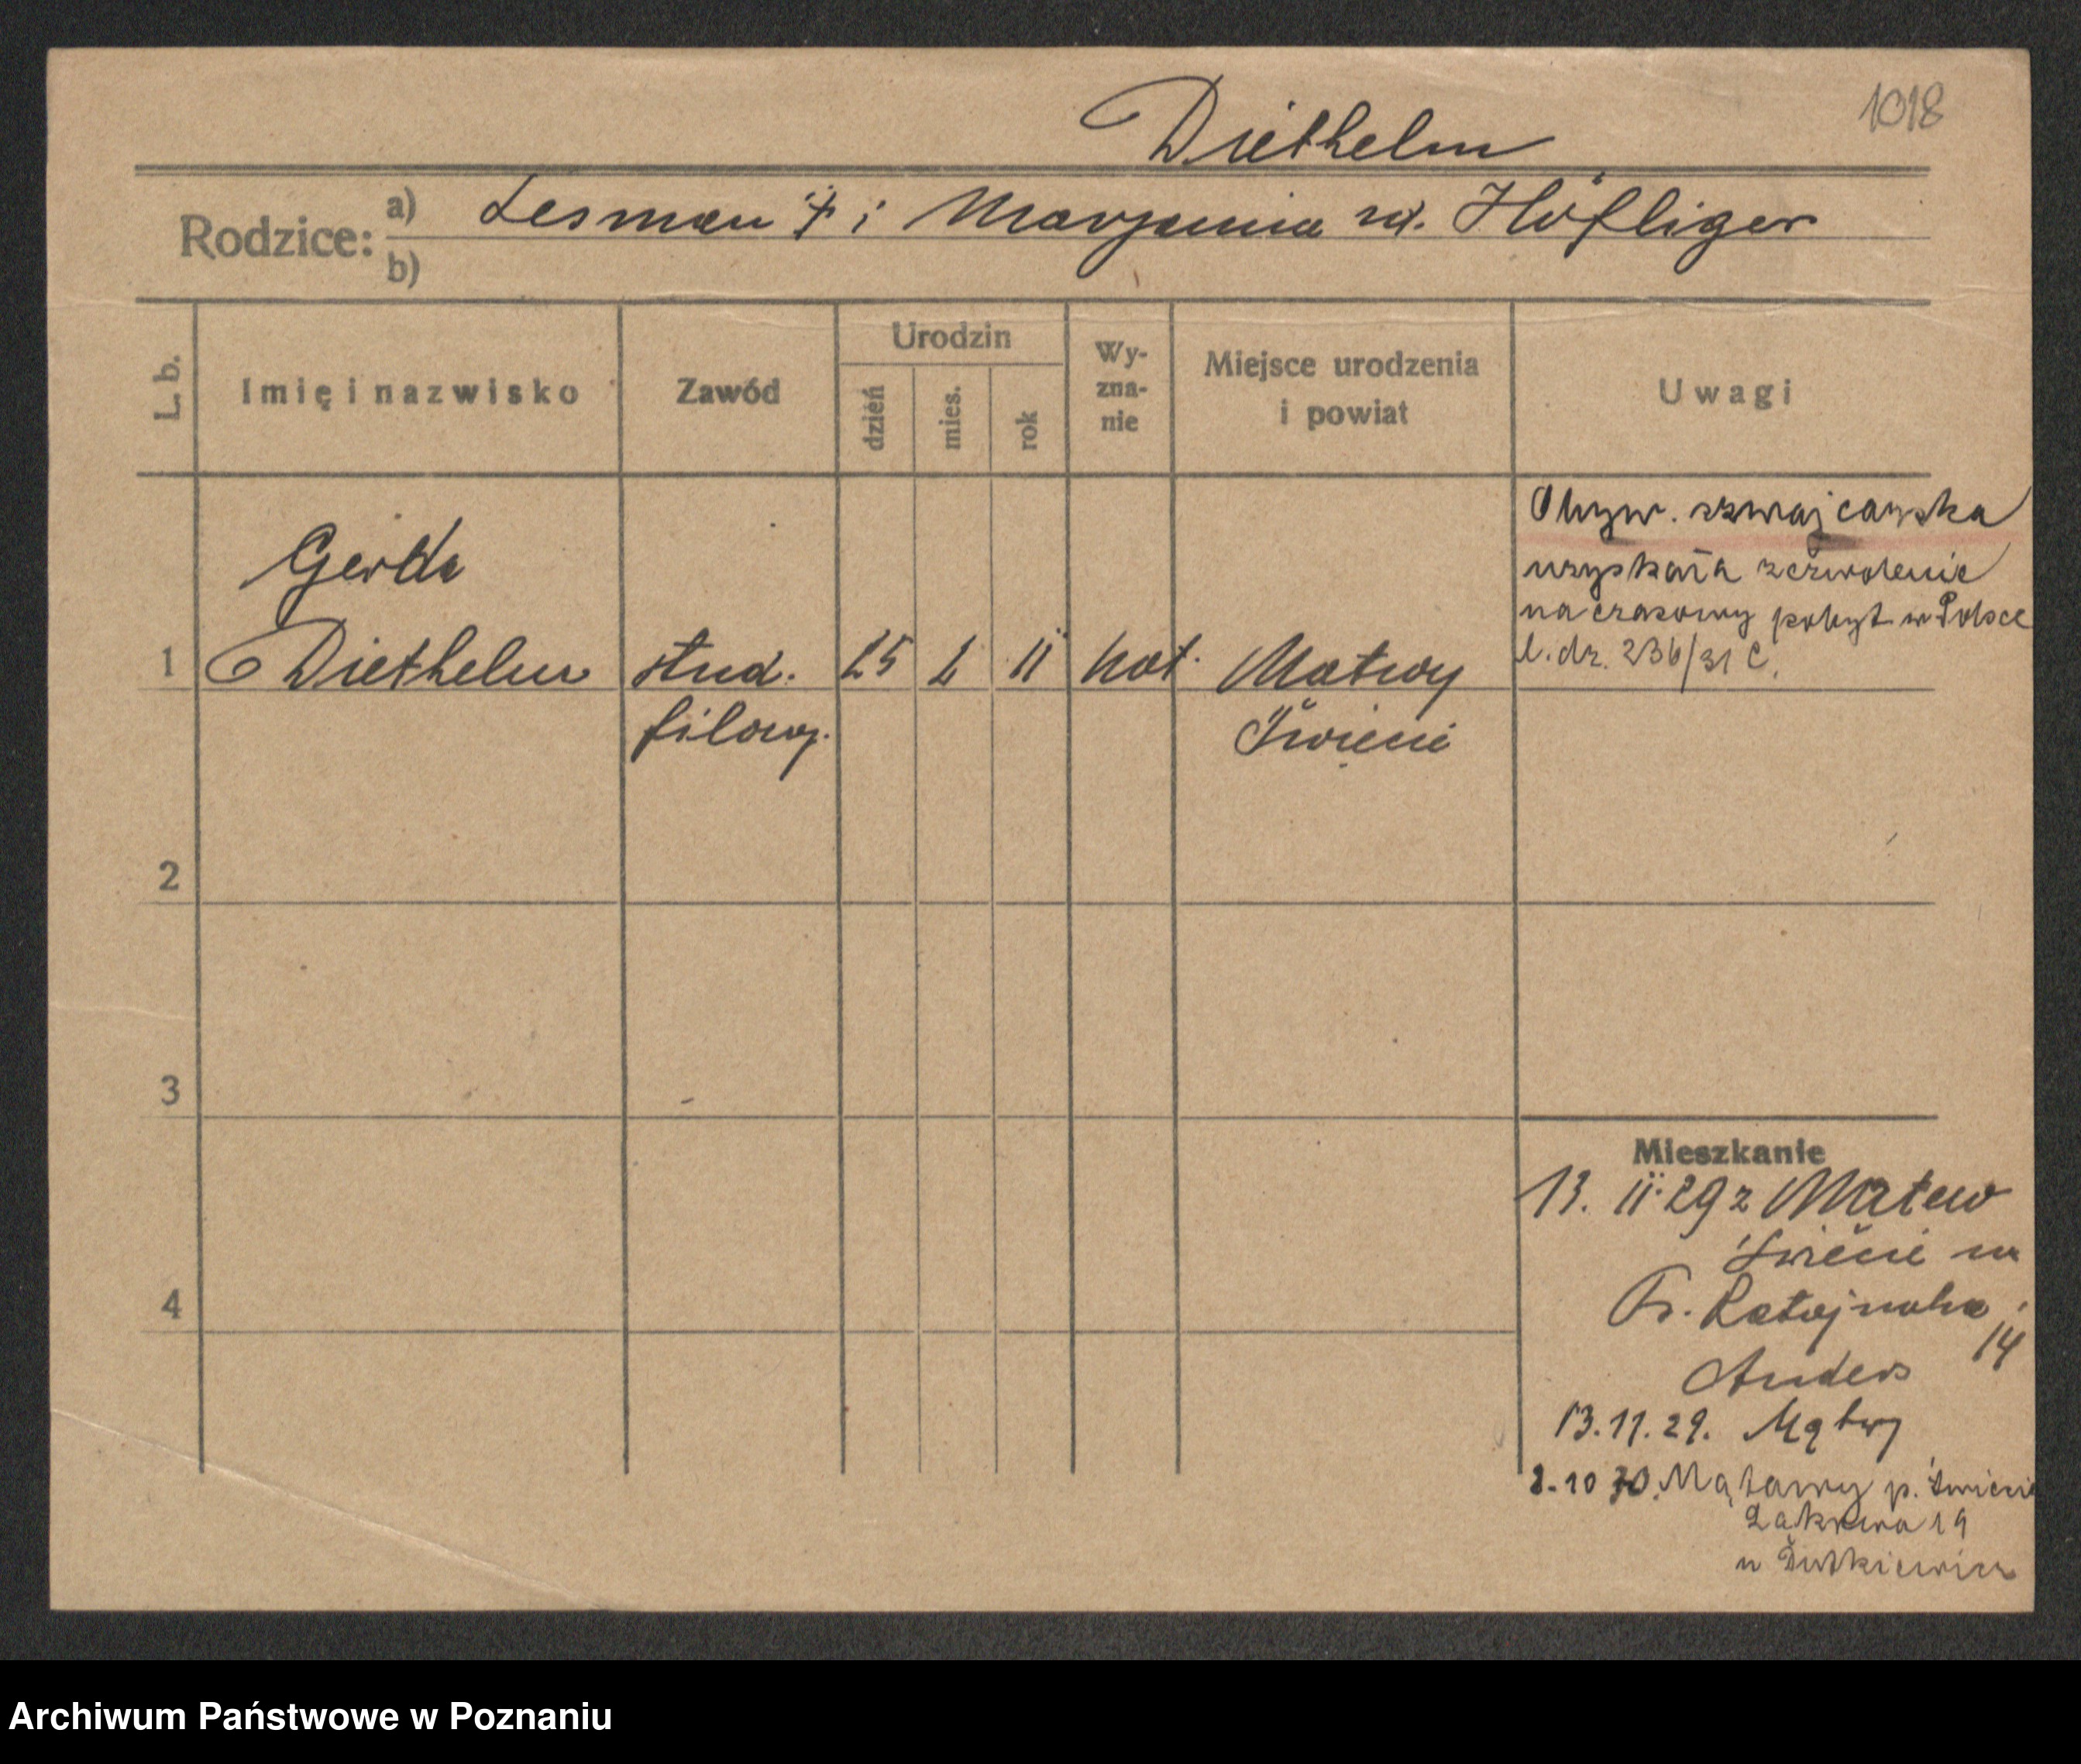 1018
Diethelm
Rodzice: a) Lesman † i Marjanna rd. Höfliger
b)
L. b.
Imię i nazwisko
Zawód
Urodzin
dzień
mies.
rok
Wy-
zna-
nie
Miejsce urodzenia
i powiat
Uwagi
Gerda
1 Diethelm stud. 25 2 11 kat. Matwy
filozof. Świecie
Obyw. szwajcarska
uzyskała zezwolenie
na czasowy pobyt w Polsce
l. dz. 236/31 C.
2
3
4
Mieszkanie
13. II. 29 z Matew
Świecie na
Fr. Ratajczaka
14
Anders
13.11.29. Mątwy
2.10 30. Mątawy p. Świecie
Łąkowa 19
u Dutkiewicz
Archiwum Państwowe w Poznaniu